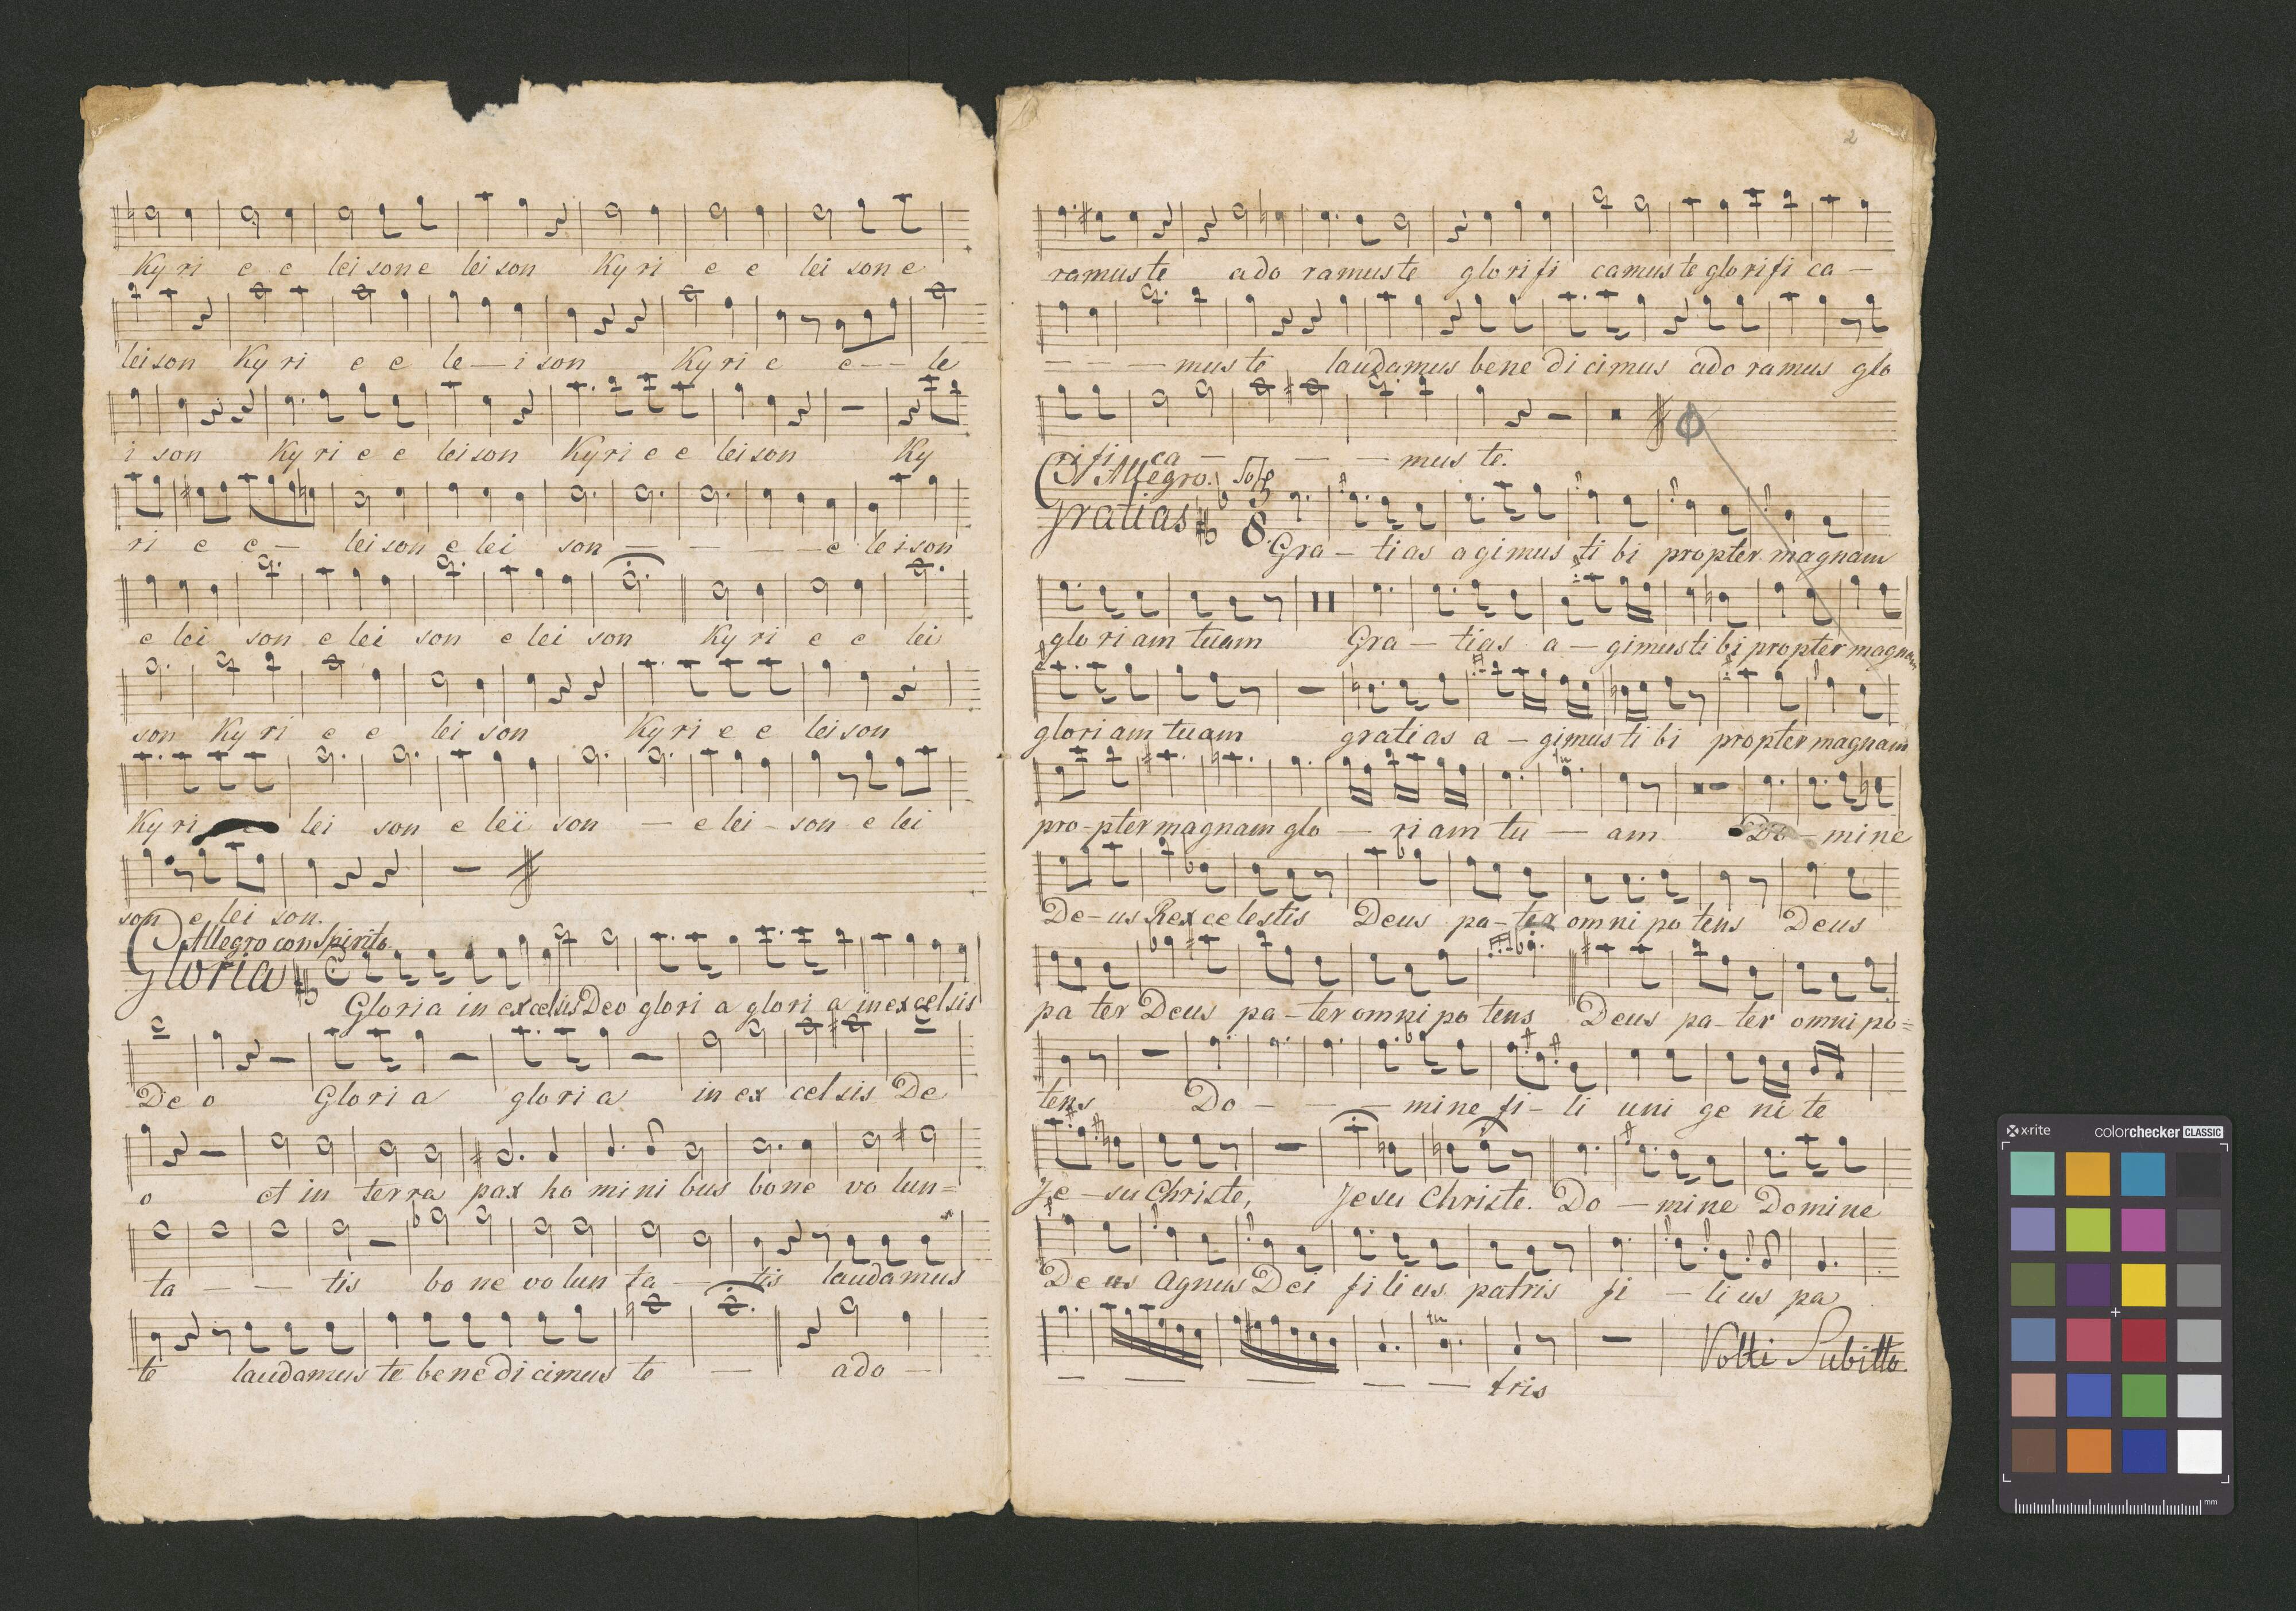 Ky ri e e lei son e lei son Ky ri e e lei son e
lei son Ky ri e e le — i son Ky ri e e — — le
i son Ky ri e e lei son Ky ri e e lei son Ky
ri e e — lei son e lei son — — — — e lei son
e lei son e lei son e lei son Ky ri e e lei
son Ky ri e e lei son Ky ri e e lei son
Ky ri lei son e leï son — e lei - son e lei
son e lei son.
Allegro con Spirito
Gloria
Gloria in excelsis Deo glori a glori a in excelsis
De o Glori a glori a in ex celsis De
o et in terra pax ho mini bus bone vo lun=
ta — — tis bo ne vo lun ta — tis laudamus
te laudamus te bene di cimus te — ado —
2
ramus te ado ramus te glori fi camus te glori fi ca —
— — — mus te laudamus bene di cimus ado ramus glo
ri fi ca — — — mus te.
Allegro. Solo
Gratias 3 8
Gra — ti as a gimus ti bi propter magnam
glo ri am tuam Gra — tias a — gimus ti bi propter magnam
glori am tuam grati as a — gimus ti bi propter magnam
pro - pter magnam glo — ri am tu — am Do — mine
De - us Rex ce lestis Deus pa - ter omni po tens Deus
pa ter Deus pa - ter omni po tens Deus pa - ter omni po=
tens Do — — — mine fi - li uni ge ni te
Je — su Christe, Jesu Christe. Do — mine Domine
De us Agnus Dei fi li us patris fi — li us pa
— — — — — tris
Volti Subitto
x-rite colorchecker CLASSIC
mm